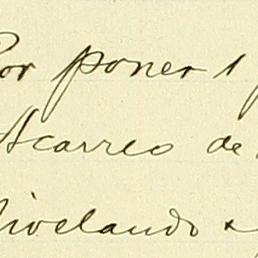 Por poner 1
Acarreo de
Nivelando